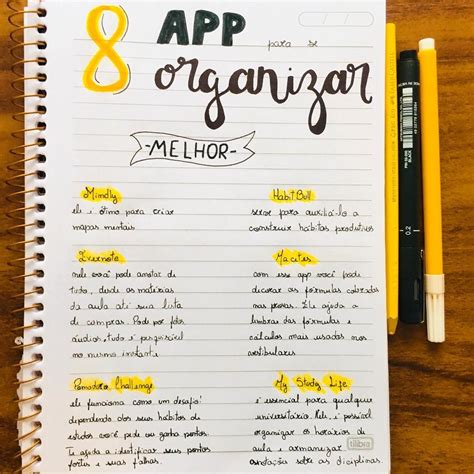 8 APP para se
organizar
-MELHOR-
Mindly
ele é ótimo para criar
mapas mentais
Evernote
nele você pode anotar de
tudo, desde as matérias
da aula até sua lista
de compras. Pode por fotos
áudios, tudo é possível
no mesmo instante
Pomodoro Challenge
ele funciona como um desafio
dependendo dos seus hábitos de
estudos você pode ou ganha pontos
Te ajuda a identificar seus pontos
fortes e suas falhas.
HabitBull
serve para auxiliá-lo a
construir hábitos produtivos
Macetes
com esse app você pode
decorar as fórmulas cobradas
nas provas. Ele ajuda a
lembrar das fórmulas e
cálculos mais usados nos
vestibulares
My Study Life
é essencial para qualquer
universitário. Nele, é possível
organizar os horários de
aula e armazenar
anotações sobre as disciplinas
tilibra
0.2